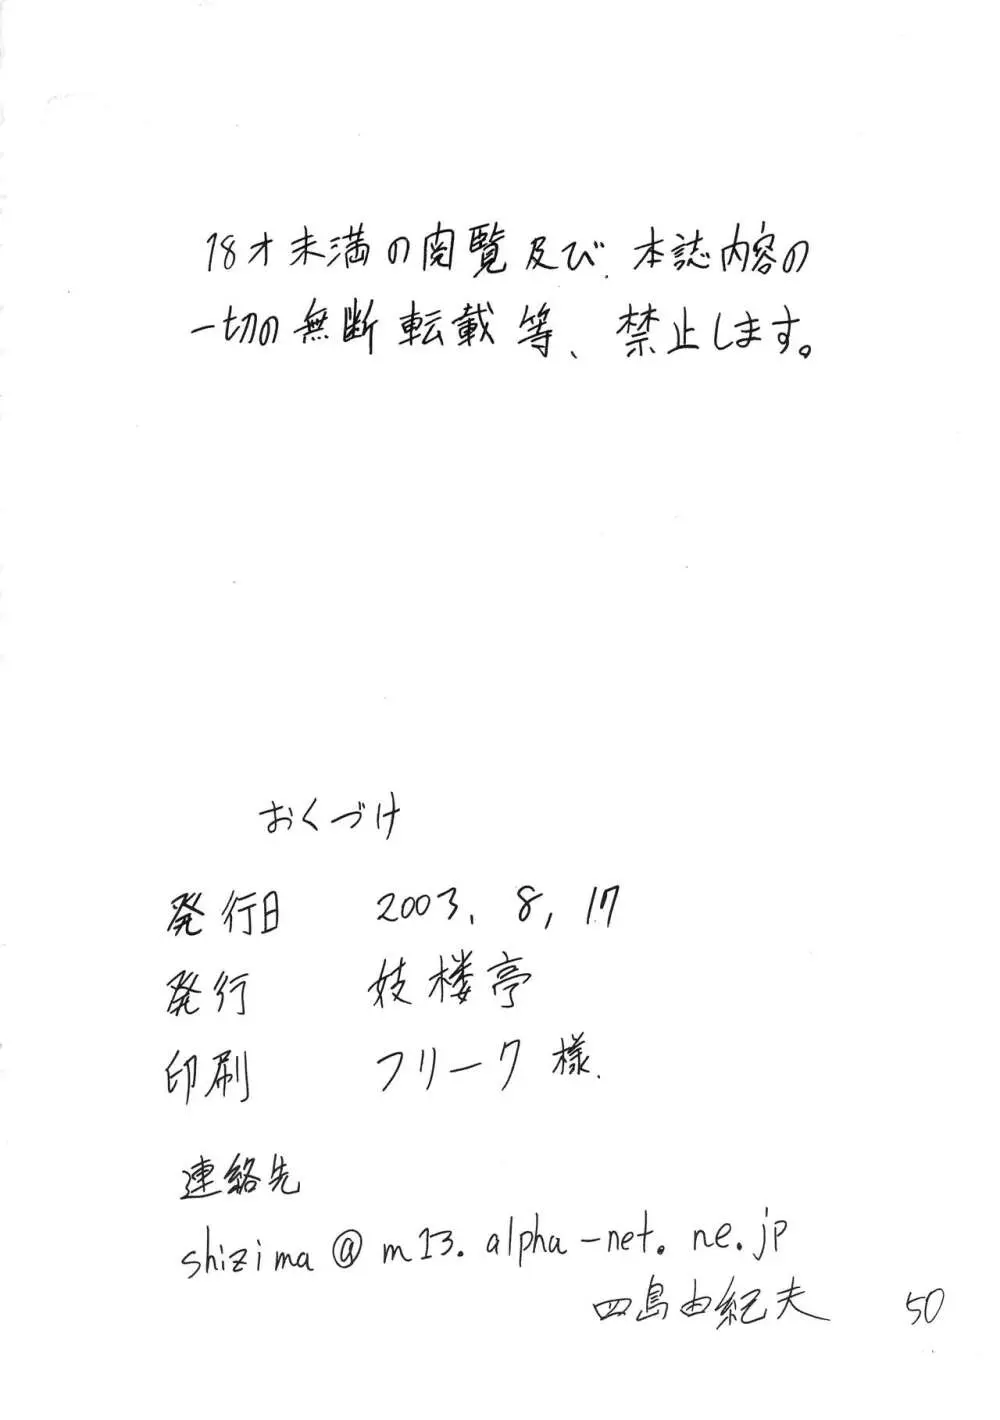 18才未満の閲覧及び、本誌内容の
一切の無断転載等、禁止します。
おくづけ
発行日 2003. 8, 17
発行 妓楼亭
印刷 フリーク様.
連絡先
shizima@m13.alpha-net.ne.jp
四島由紀夫
50